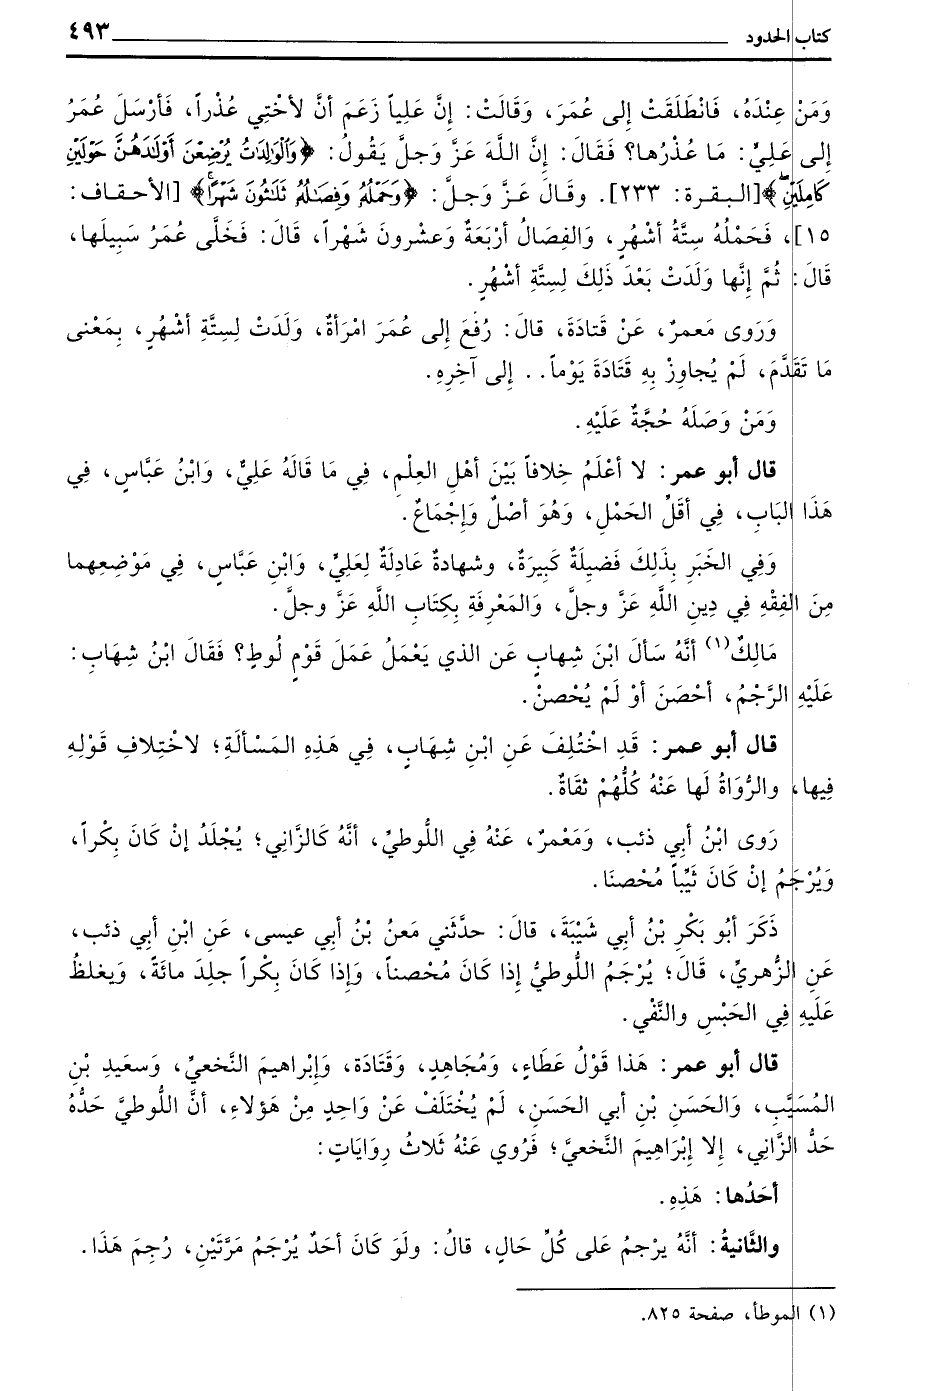 كتاب الحدود ٤٩٣
وَمَنْ عِنْدَهُ، فَانْطَلَقَتْ إلى عُمَرَ، وَقَالَتْ: إنَّ عَلِياً زَعَمَ أنَّ لأخْتِي عُذْراً، فَأرْسَلَ عُمَرُ
إلى عَلِيٍّ: مَا عُذْرُها؟ فَقالَ: إنَّ اللَّهَ عَزَّ وَجلَّ يَقُولُ: ﴿وَٱلْوَٰلِدَٰتُ يُرْضِعْنَ أَوْلَٰدَهُنَّ حَوْلَيْنِ
كَامِلَيْنِ﴾[البـقـرة: ٢٣٣]. وقَـالَ عَـزَّ وَجـلَّ: ﴿وَحَمْلُهُۥ وَفِصَٰلُهُۥ ثَلَٰثُونَ شَهْرًا﴾ [الأحـقـاف:
١٥]، فَحَمْلُهُ سِتَّةُ أشْهُرٍ، وَالفِصَالُ أرْبَعَةٌ وَعشرونَ شَهْراً، قَالَ: فَخَلَّى عُمَرُ سَبِيلَها،
قالَ: ثُمَّ إنَّها وَلَدَتْ بَعْدَ ذَلِكَ لِستَّةِ أشْهُرٍ.
وَرَوى مَعمرٌ، عَنْ قَتادَةَ، قالَ: رُفعَ إلى عُمَرَ امْرَأةٌ، وَلَدَتْ لِستَّةِ أشْهُرٍ، بِمَعْنى
مَا تَقَدَّمَ، لَمْ يُجاوِزْ بِهِ قَتَادَةَ يَوْماً.. إلى آخِرِهِ.
وَمَنْ وَصَلَهُ حُجَّةٌ عَلَيْهِ.
قال أبو عمر: لا أعْلَمُ خِلافاً بَيْنَ أهْلِ العِلْمِ، فِي مَا قَالَهُ عَلِيٌّ، وَابْنُ عَبَّاسٍ، فِي
هَذَا البَابِ، فِي أقَلِّ الحَمْلِ، وَهُوَ أصْلٌ وَإجْمَاعٌ.
وَفِي الخَبَرِ بِذَلِكَ فَضيلَةٌ كَبِيرَةٌ، وشهادةٌ عَادِلَةٌ لِعَلِيٍّ، وَابْنِ عَبَّاسٍ، فِي مَوْضِعِهما
مِنَ الفِقْهِ فِي دِينِ اللَّهِ عَزَّ وجلَّ، وَالمَعْرِفَةِ بِكِتَابِ اللَّهِ عَزَّ وجلَّ.
مَالِكٌ(١) أنَّهُ سَألَ ابْنَ شِهابٍ عَن الذي يَعْمَلُ عَمَلَ قَوْمِ لُوطٍ؟ فَقَالَ ابْنُ شِهَابٍ:
عَلَيْهِ الرَّجْمُ، أحْصَنَ أوْ لَمْ يُحْصنْ.
قال أبو عمر: قَدِ اخْتُلِفَ عَنِ ابْنِ شِهَابٍ، فِي هَذِهِ المَسْألَةِ؛ لاخْتِلافِ قَوْلِهِ
فِيها، والرُّوَاةُ لَها عَنْهُ كُلُّهُمْ ثقَاةٌ.
رَوى ابْنُ أبِي ذئب، وَمَعْمرٌ، عَنْهُ فِي اللُّوطيِّ، أنَّهُ كَالزَّانِي؛ يُجْلَدُ إنْ كَانَ بِكْراً،
وَيُرْجَمُ إنْ كَانَ ثَيِّباً مُحْصنَا.
ذَكَرَ أبُو بَكْرِ بْنُ أبِي شَيْبَةَ، قالَ: حدَّثَني مَعنُ بْنُ أبِي عيسى، عَنِ ابْنِ أبِي ذئب،
عَنِ الزُّهريِّ، قَالَ؛ يُرْجَمُ اللُّوطيُّ إذَا كانَ مُحْصناً، وَإذا كَانَ بِكْراً جلِدَ مائَةً، وَيغلظُ
عَلَيهِ فِي الحَبْسِ والنَّفْي.
قال أبو عمر: هَذا قَوْلُ عَطَاءٍ، وَمُجَاهِدٍ، وَقَتَادَة، وَإبْراهيمَ النَّخعيِّ، وَسعَيدِ بْنِ
المُسَيَّبِ، وَالحَسَنِ بْنِ أبي الحَسَنِ، لَمْ يُخْتَلَفْ عَنْ وَاحِدٍ مِنْ هَؤلاءِ، أنَّ اللُّوطيَّ حَدُّهُ
حَدُّ الزَّانِي، إلا إبْرَاهِيمَ النَّخعيَّ؛ فَرُوي عَنْهُ ثَلاثُ رِوَايَاتٍ:
أحَدُها: هَذِهِ.
والثَّانيةُ: أنَّهُ يرْجمُ عَلى كُلِّ حَالٍ، قالُ: ولَوَ كَانَ أحَدٌ يُرْجَمُ مَرَّتَيْنِ، رُجِمَ هَذَا.
(١) الموطأ، صفحة ٨٢٥.